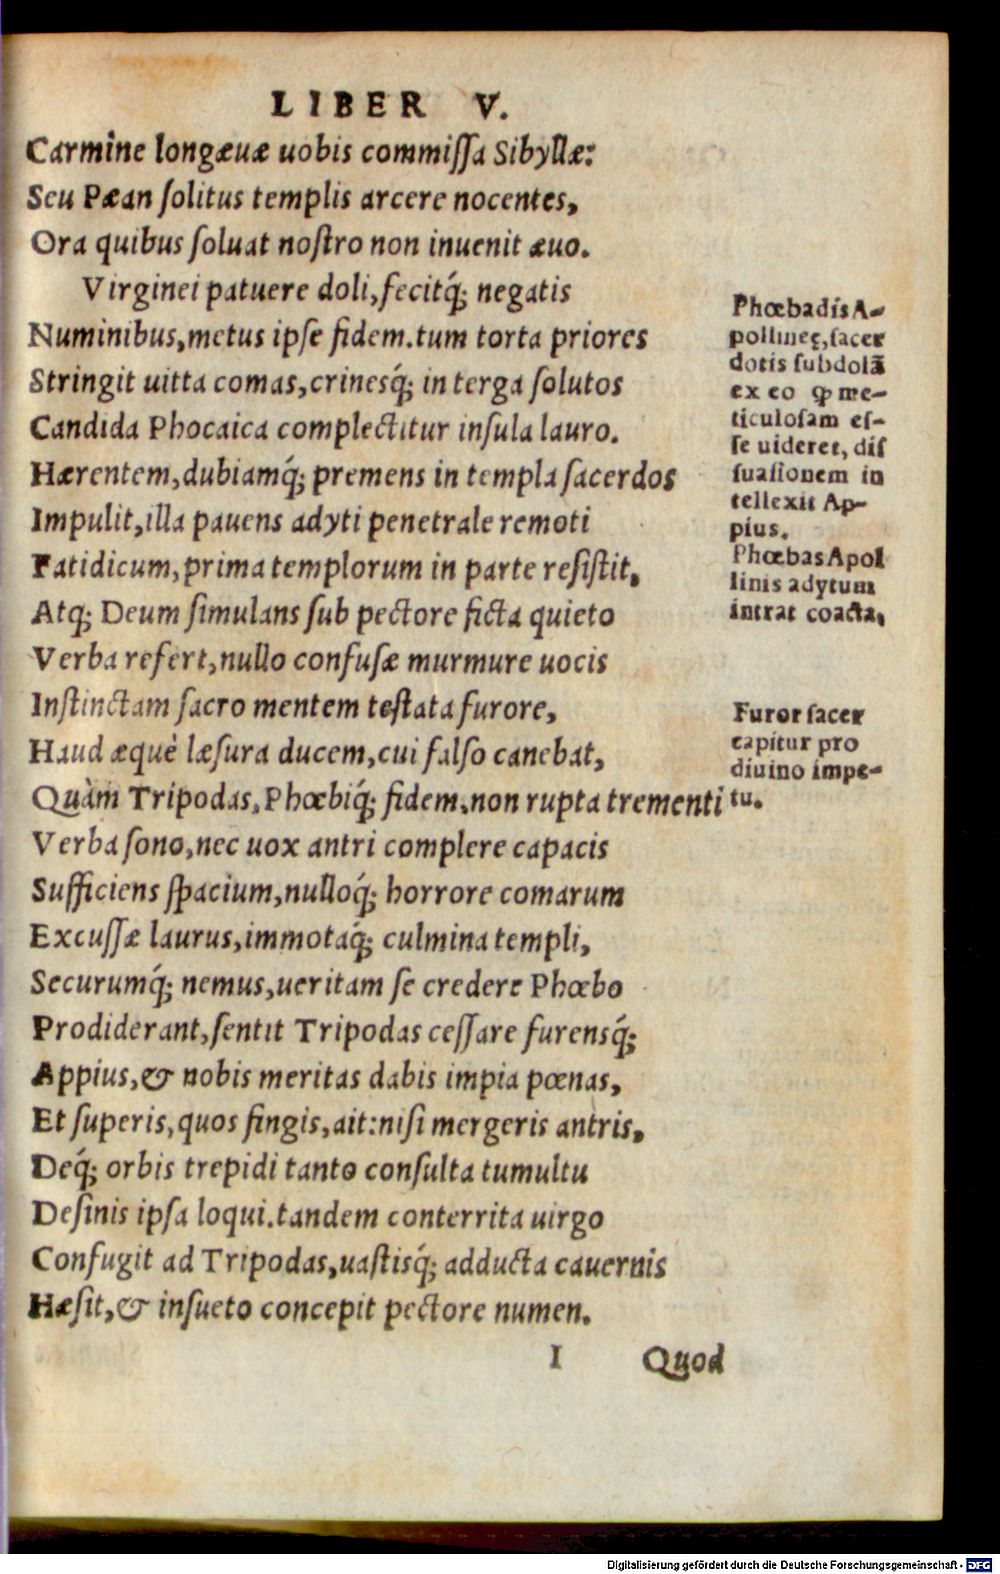 LIBER V.
Carmine longæuæ uobis commissa Sibyllæ:
Seu Pæan solitus templis arcere nocentes,
Ora quibus soluat nostro non inuenit æuo.
Virginei patuere doli, fecitq́; negatis
Numinibus, metus ipse fidem. tum torta priores
Stringit uitta comas, crinesq́; in terga solutos
Candida Phocaica complectitur insula lauro.
Hærentem, dubiamq́; premens in templa sacerdos
Impulit, illa pauens adyti penetrale remoti
Fatidicum, prima templorum in parte resistit,
Atq; Deum simulans sub pectore ficta quieto
Verba refert, nullo confusæ murmure uocis
Instinctam sacro mentem testata furore,
Haud æquè læsura ducem, cui falso canebat,
Quàm Tripodas, Phœbiq́; fidem. non rupta trementi
Verba sono, nec uox antri complere capacis
Sufficiens spacium, nulloq́; horrore comarum
Excussæ laurus, immotaq́; culmina templi,
Securumq́; nemus, ueritam se credere Phœbo
Prodiderant, sentit Tripodas cessare furensq́;
Appius, & nobis meritas dabis impia pœnas,
Et superis, quos fingis, ait: nisi mergeris antris,
Deq́; orbis trepidi tanto consulta tumultu
Desinis ipsa loqui. tandem conterrita uirgo
Confugit ad Tripodas, uastisq́; adducta cauernis
Hæsit, & insueto concepit pectore numen.
I Quod
Phœbadis A-
pollineę, sacer
dotis subdolā
ex eo ꝙ me-
ticulosam es-
se uideret, dis
suasionem in
tellexit Ap-
pius.
Phœbas Apol
linis adytum
intrat coacta,
Furor sacer
capitur pro
diuino impe-
tu.
Digitalisierung gefördert durch die Deutsche Forschungsgemeinschaft - DFG